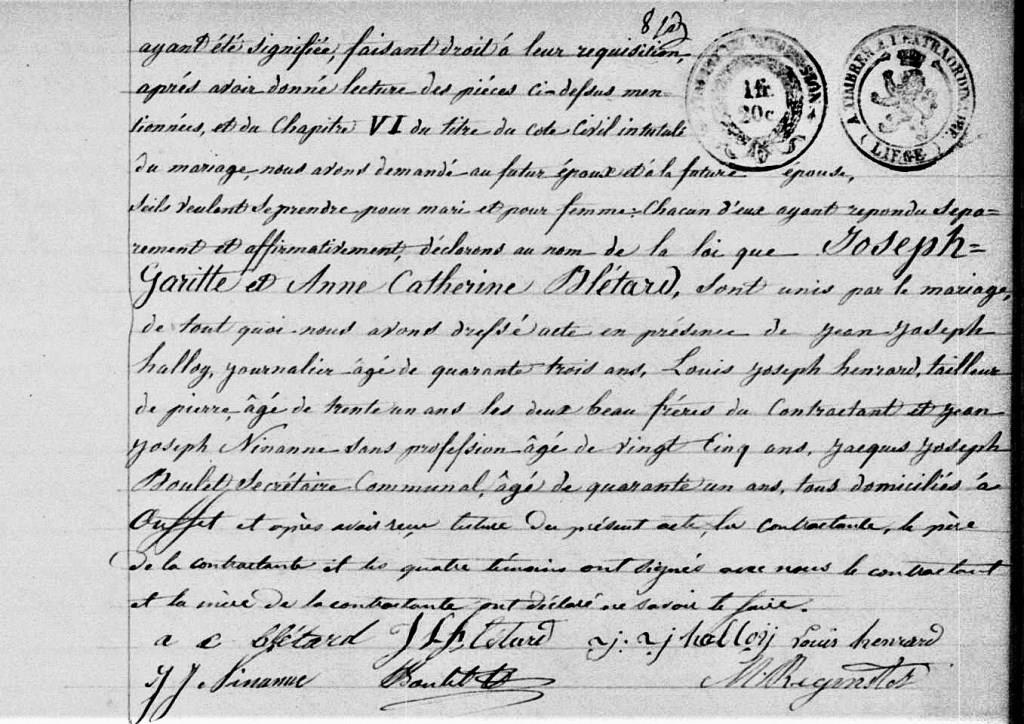 ayant été signifiée, faisant droit à leur requisition,
après avoir donné lecture des pièces ci-dessus men
tionnées, et du Chapitre VI du titre du code Civil intitulé
du mariage, nous avons demandé au futur époux et à la future épouse,
s'ils veulent se prendre pour mari et pour femme: Chacun d'eux ayant repondu sepa=
rement et affirmativement, déclarons au nom de la loi que Joseph=
Garitte et Anne Catherine Blétard, sont unis par le mariage,
de tout quoi nous avons dressé acte en présence de Jean Joseph
halloy, journalier âgé de quarante trois ans, Louis Joseph henrard, tailleur
de pierre, âgé de trente un ans les deux beau fréres du Contractant et Jean
Joseph Ninanne sans profession âgé de vingt Cinq ans, Jacques Joseph
Boulet Secrétaire Communal, âgé de quarante un ans, tous domiciliés à
Ouffet et après avoir reçu lecture du présent acte, la contractante, le père
de la contractante et les quatre témoins ont signés avec nous le contractant
et la mère de la contractante ont déclaré ne savoir le faire.
1 fr.
20 c
A TIMBRER A L'EXTRAORDIN.
(LIEGE)
a c blétard J L Bletard j. j halloy Louis henrard
J J Ninanne Boulet